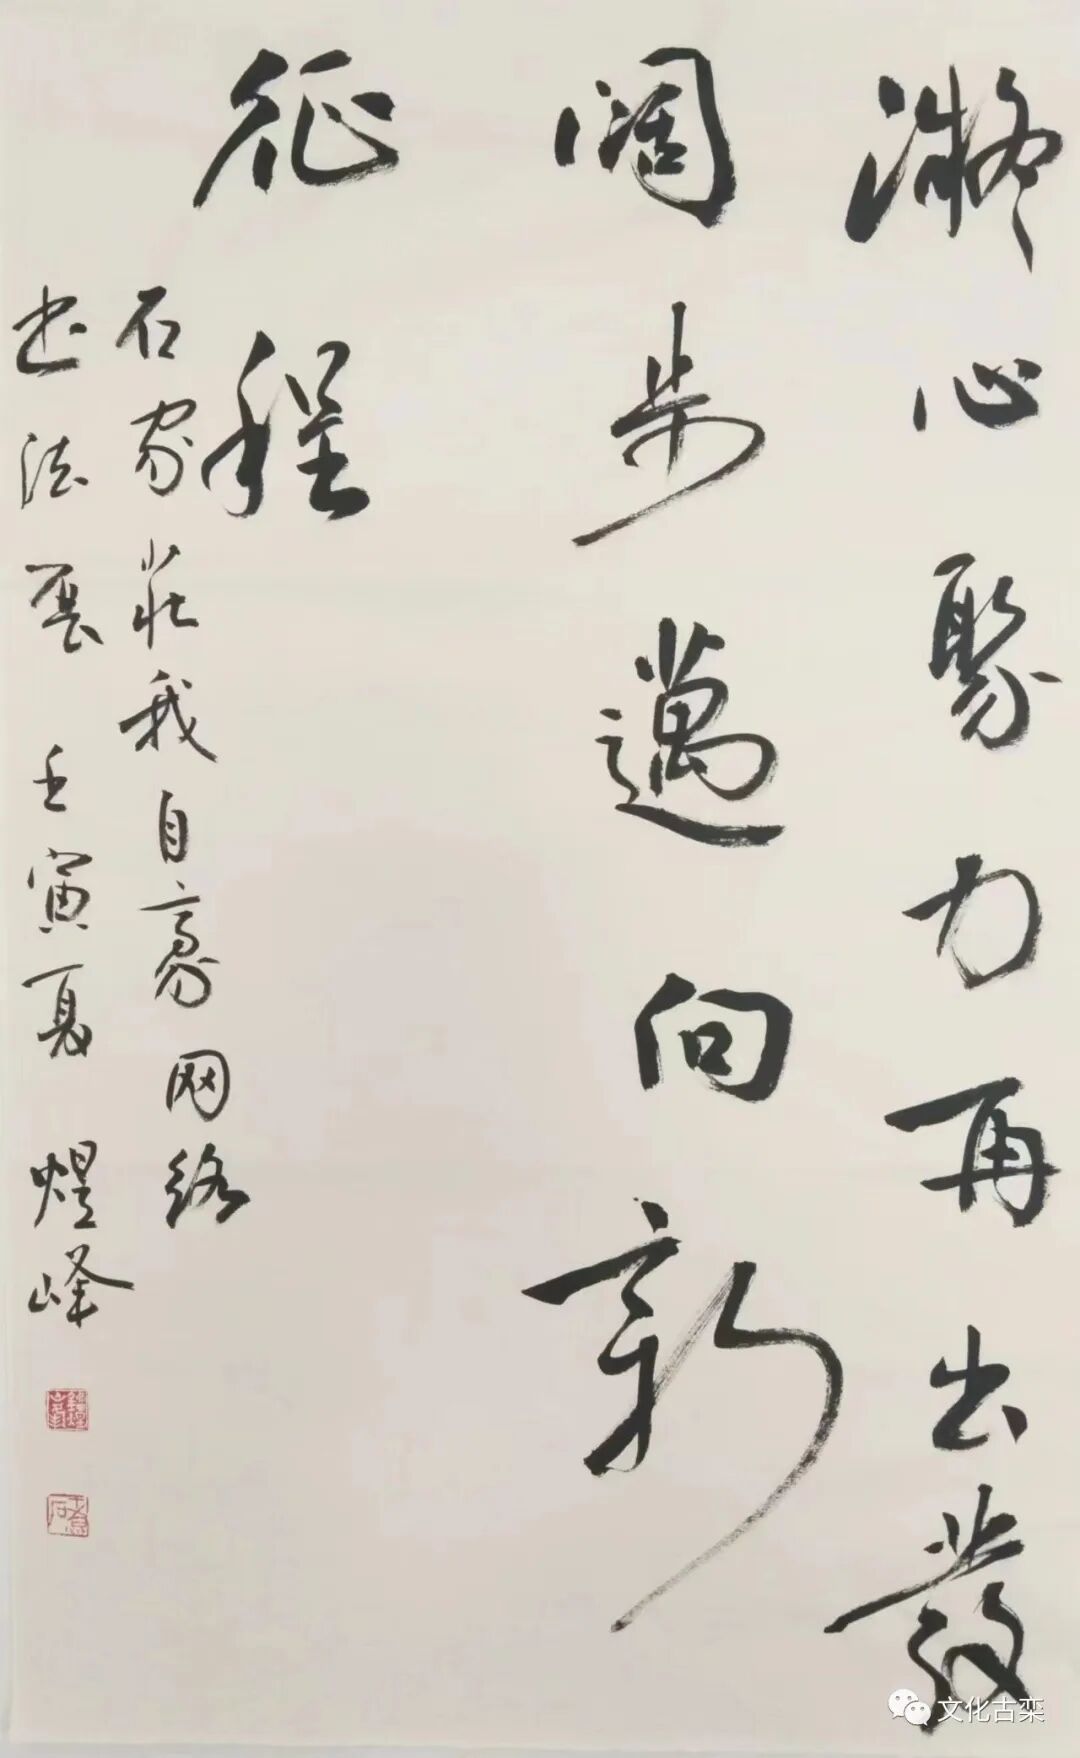 凝心聚力再出發
阔步邁向新
征程
石家莊我自豪网络
书法展 壬寅夏 煜峰
文化古栾